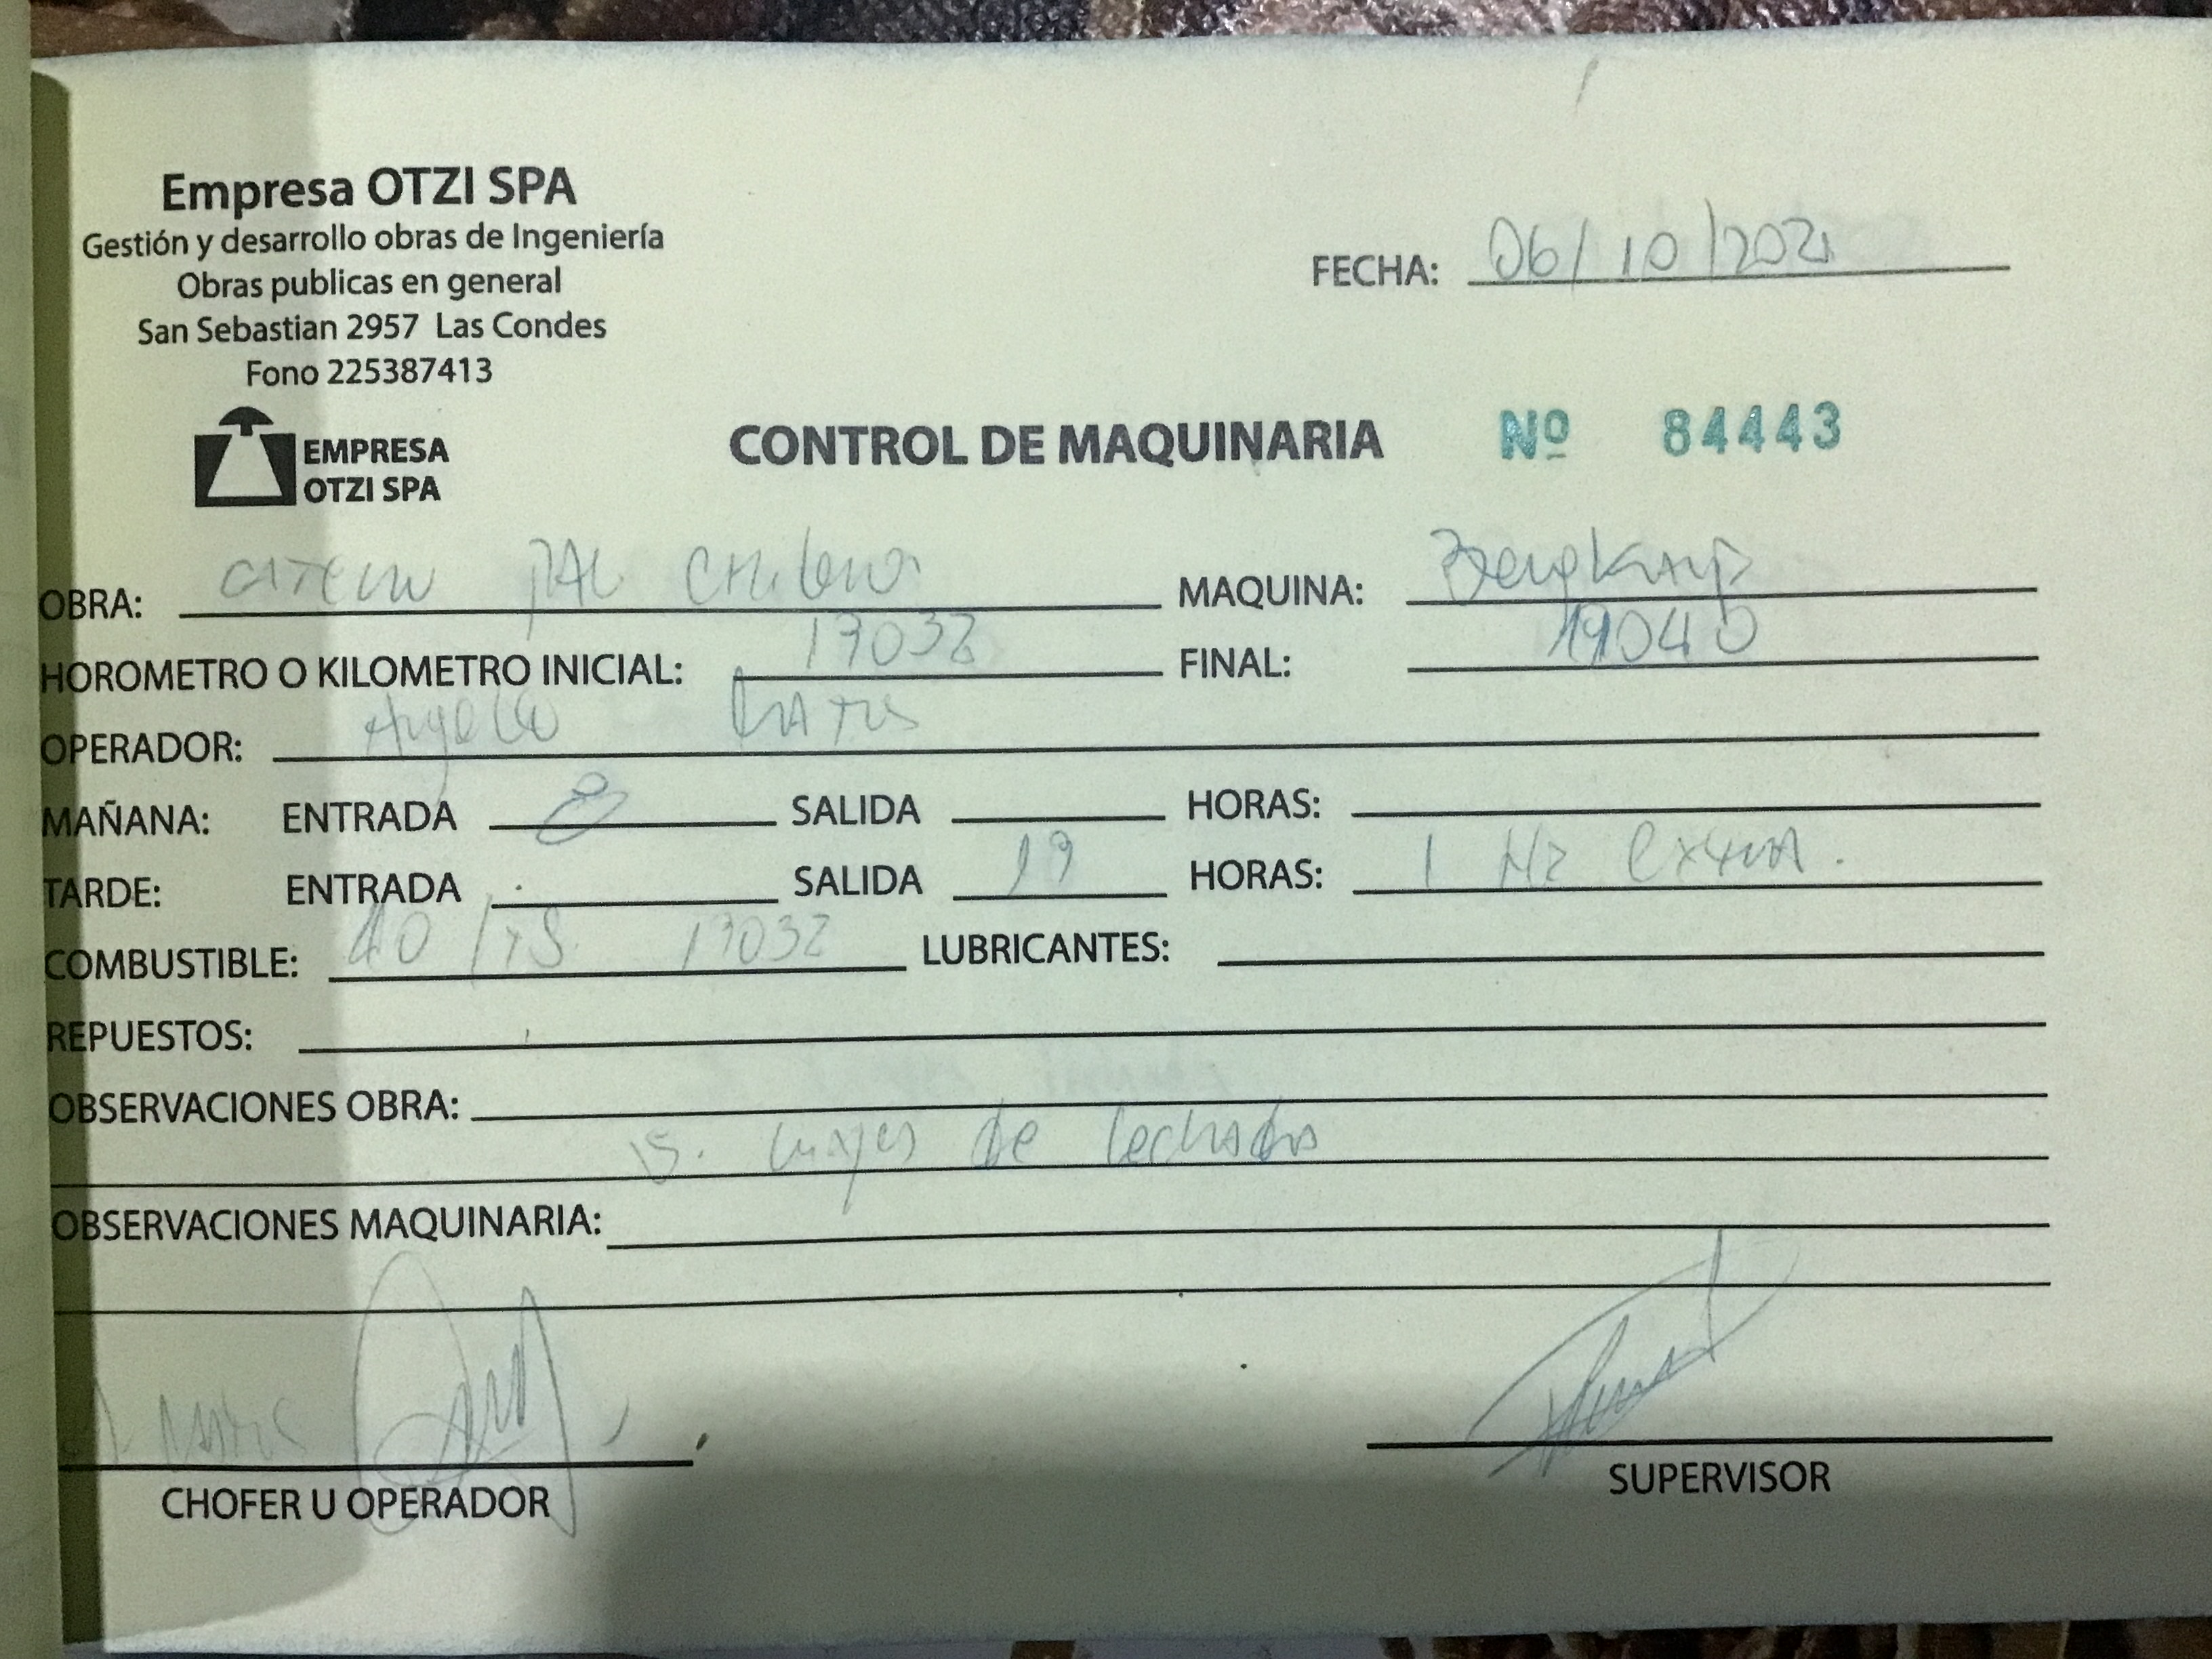 Empresa OTZI SPA
Gestión y desarrollo obras de Ingeniería
Obras publicas en general
San Sebastian 2957 Las Condes
Fono 225387413
FECHA: 06/10/2021
EMPRESA
OTZI SPA
CONTROL DE MAQUINARIA Nº 84443
OBRA: MAQUINA:
HOROMETRO O KILOMETRO INICIAL: 17032 FINAL: 19040
OPERADOR:
MAÑANA: ENTRADA 8 SALIDA HORAS:
TARDE: ENTRADA SALIDA 19 HORAS: 1 Hr extra.
COMBUSTIBLE: 40 lts. 17032 LUBRICANTES:
REPUESTOS:
OBSERVACIONES OBRA:
de
OBSERVACIONES MAQUINARIA:
CHOFER U OPERADOR
SUPERVISOR